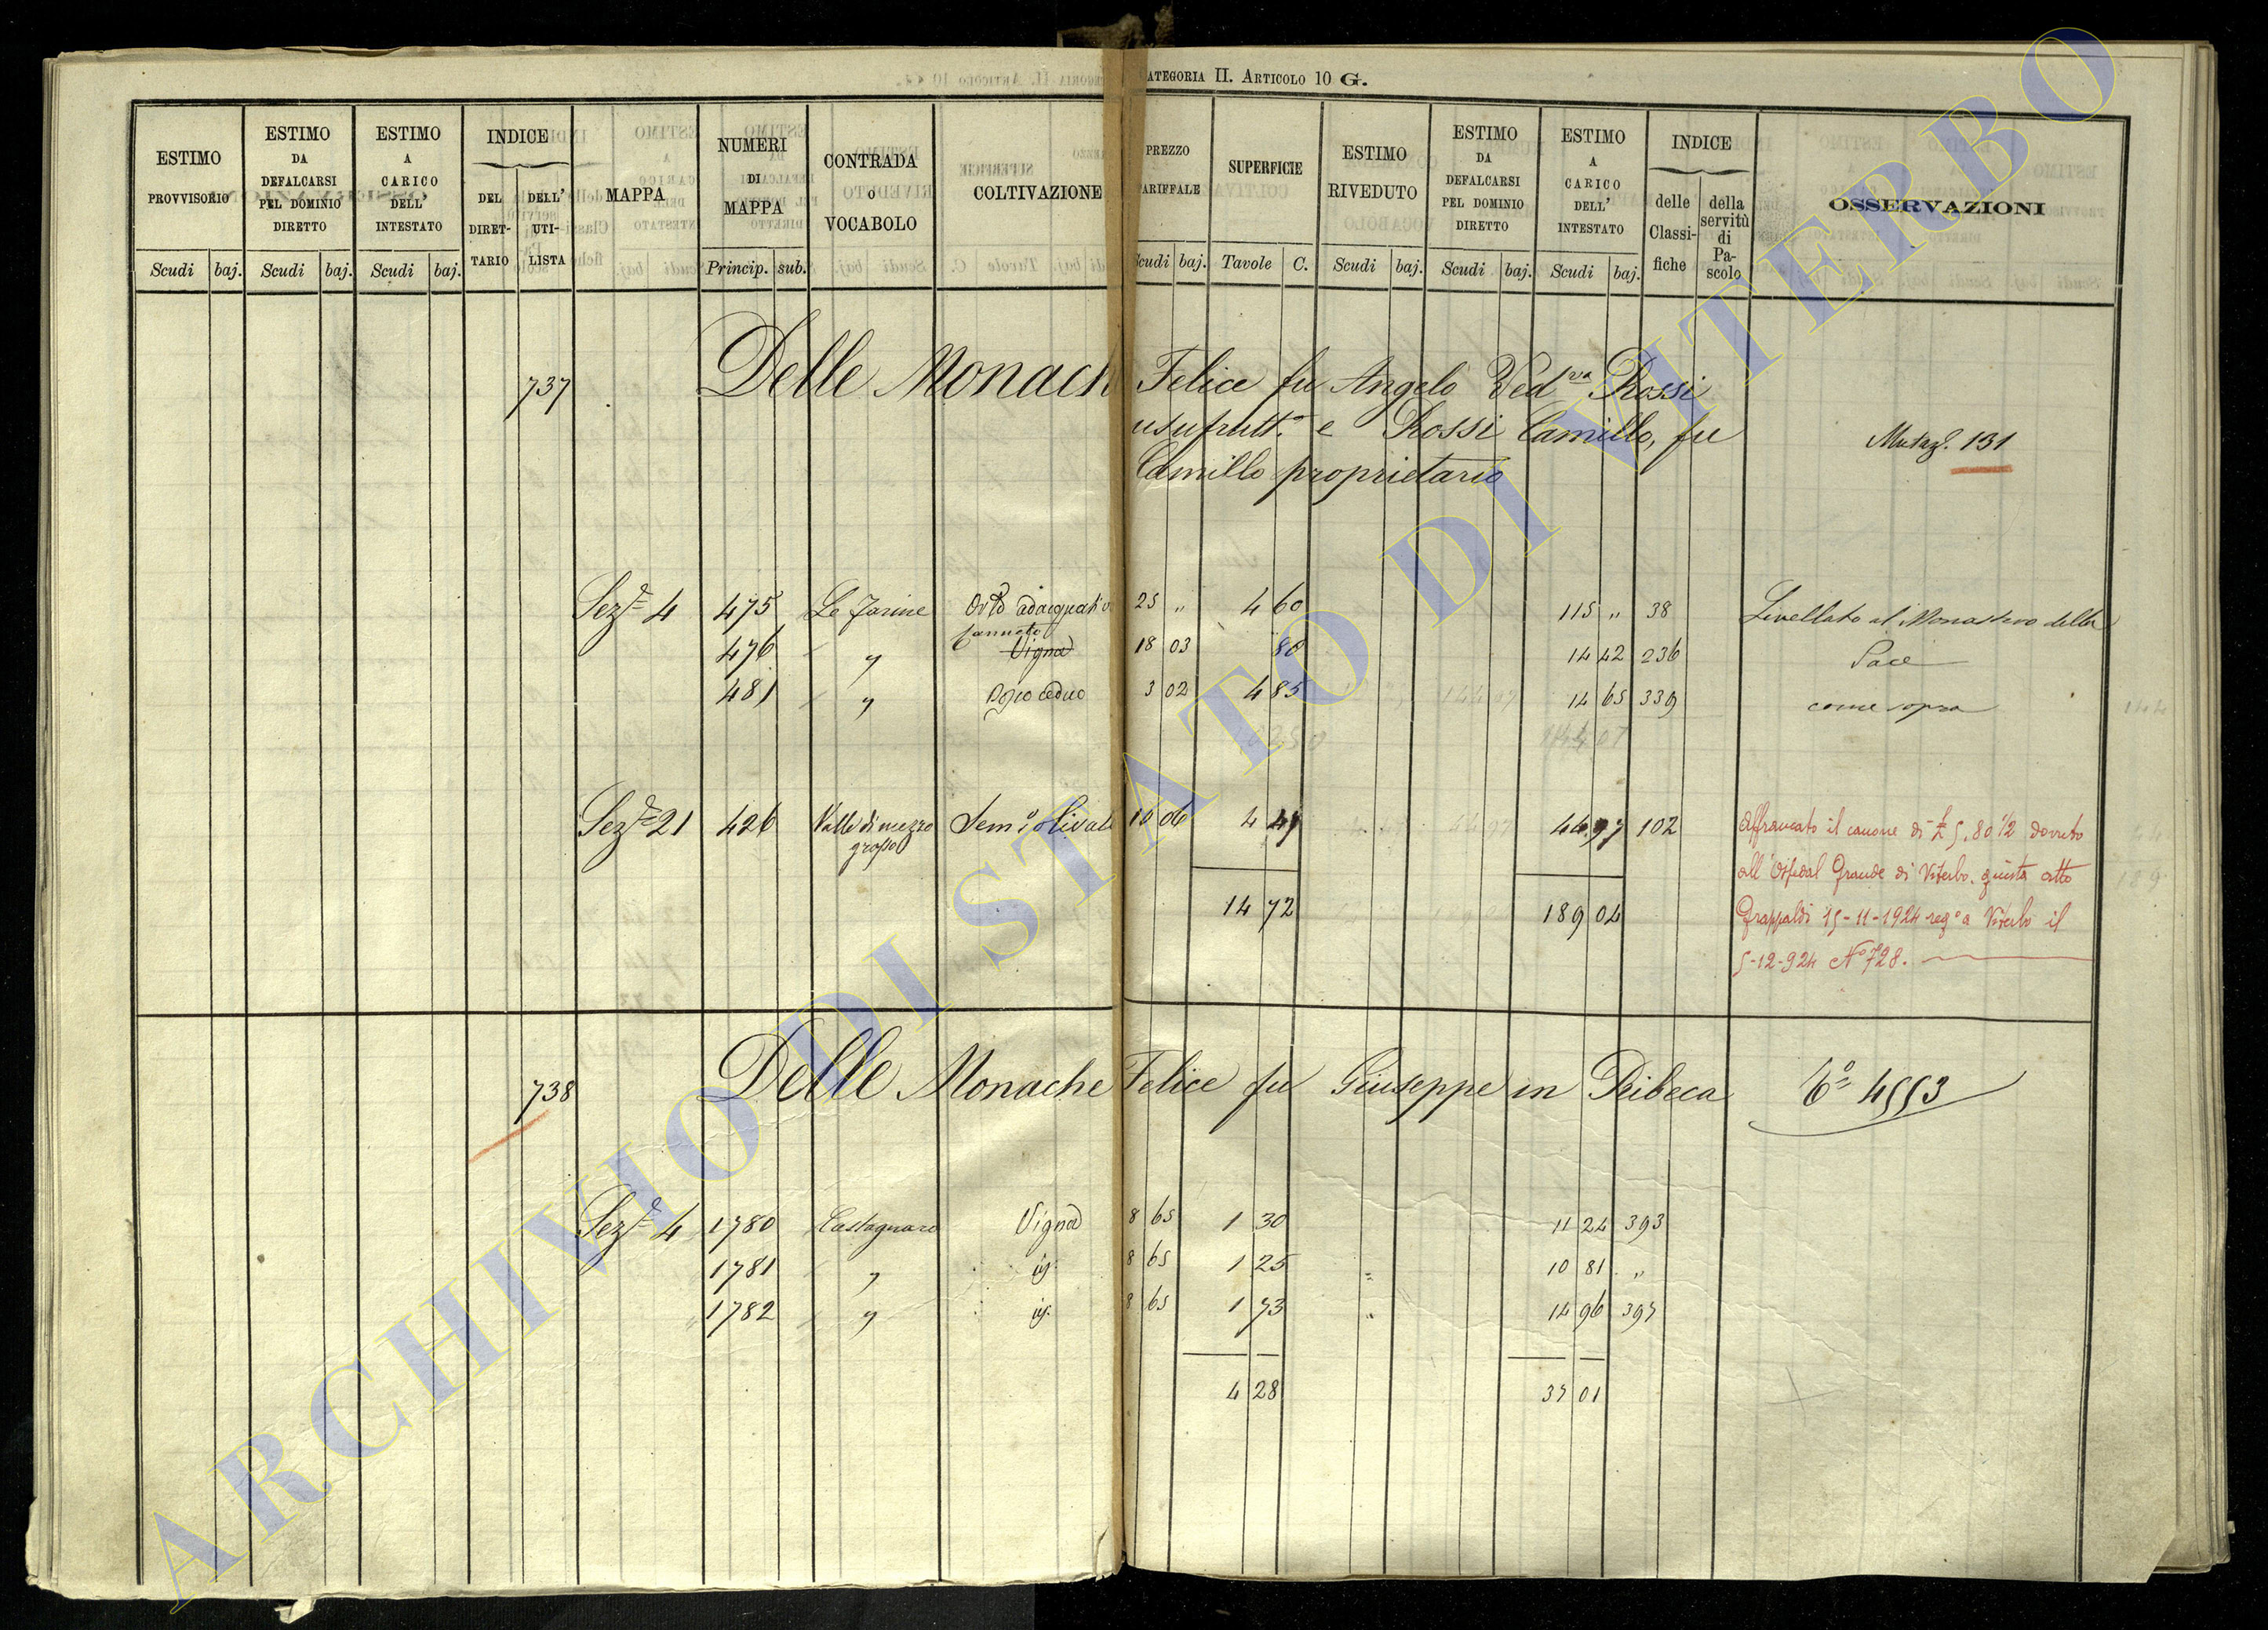 CATEGORIA II. ARTICOLO 10 G.
ESTIMO PROVVISORIO Scudi baj.
ESTIMO DA DEFALCARSI PEL DOMINIO DIRETTO Scudi baj.
ESTIMO A CARICO DELL' INTESTATO Scudi baj.
INDICE DEL DIRET-TARIO DELL' UTI-LISTA
MAPPA
NUMERI DI MAPPA Princip. sub.
CONTRADA O VOCABOLO
COLTIVAZIONE
PREZZO TARIFFALE Scudi baj.
SUPERFICIE Tavole C.
ESTIMO RIVEDUTO Scudi baj.
ESTIMO DA DEFALCARSI PEL DOMINIO DIRETTO Scudi baj.
ESTIMO A CARICO DELL' INTESTATO Scudi baj.
INDICE delle Classi-fiche della servitù di Pa-scolo
OSSERVAZIONI
737 Delle Monach Felice fu Angelo Ved.va Rossi
usufrutt.a e Rossi Camillo, fu
Camillo proprietario
Mutaz. 131
Sez.e 4 475 Le Farine Orto adacquativo 25 " 4 60 115 " 38 Livellato al Monastero della
Canneto
476 " Vigna 18 03 80 14 42 236 Pace
481 " Bosco ceduo 3 02 4 85 14 65 339 come sopra
144 07
Sez.e 21 426 Valle di mezzo Sem.o Olivato 10 06 4 47 44 97 102
grosso
14 72 189 04
Affrancato il canone di £ 5.80 1/2 dovuto
all'Ospedal Grande di Viterbo. giusta atto
Grappaldi 15-11-1924 reg.o a Viterbo il
5-12-924 No 728.
738 Delle Monache Felice fu Giuseppe in Ribeca Co 4553
Sez.e 4 1780 Castagnaro Vigna 8 65 1 30 11 24 393
1781 " id. 8 65 1 25 10 81 "
1782 " id. 8 65 1 73 14 96 397
4 28 37 01
ARCHIVIO DI STATO DI VITERBO